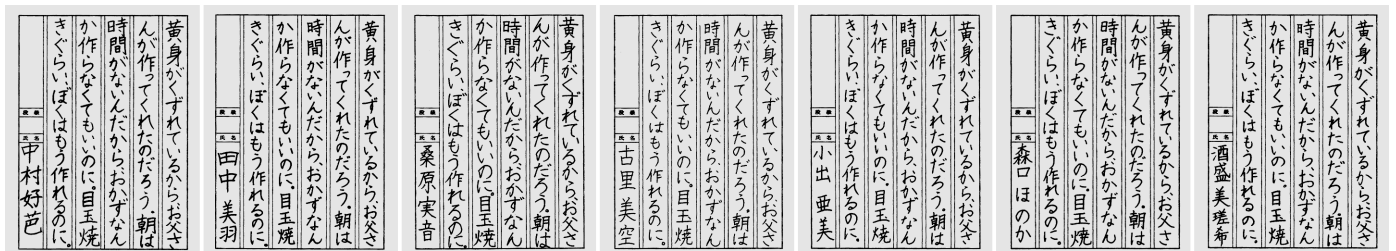 黄身がくずれているから、お父さ
んが作ってくれたのだろう。朝は
時間がないんだから、おかずなん
か作らなくてもいいのに。目玉焼
きぐらい、ぼくはもう作れるのに。
段級
氏名
中村好芭
黄身がくずれているから、お父さ
んが作ってくれたのだろう。朝は
時間がないんだから、おかずなん
か作らなくてもいいのに。目玉焼
きぐらい、ぼくはもう作れるのに。
段級
氏名
田中美羽
黄身がくずれているから、お父さ
んが作ってくれたのだろう。朝は
時間がないんだから、おかずなん
か作らなくてもいいのに。目玉焼
きぐらい、ぼくはもう作れるのに。
段級
氏名
桑原実音
黄身がくずれているから、お父さ
んが作ってくれたのだろう。朝は
時間がないんだから、おかずなん
か作らなくてもいいのに。目玉焼
きぐらい、ぼくはもう作れるのに。
段級
氏名
古里美空
黄身がくずれているから、お父さ
んが作ってくれたのだろう。朝は
時間がないんだから、おかずなん
か作らなくてもいいのに。目玉焼
きぐらい、ぼくはもう作れるのに。
段級
氏名
小出亜美
黄身がくずれているから、お父さ
んが作ってくれたのだろう。朝は
時間がないんだから、おかずなん
か作らなくてもいいのに。目玉焼
きぐらい、ぼくはもう作れるのに。
段級
氏名
森口ほのか
黄身がくずれているから、お父さ
んが作ってくれたのだろう。朝は
時間がないんだから、おかずなん
か作らなくてもいいのに。目玉焼
きぐらい、ぼくはもう作れるのに。
段級
氏名
酒盛美瑳希